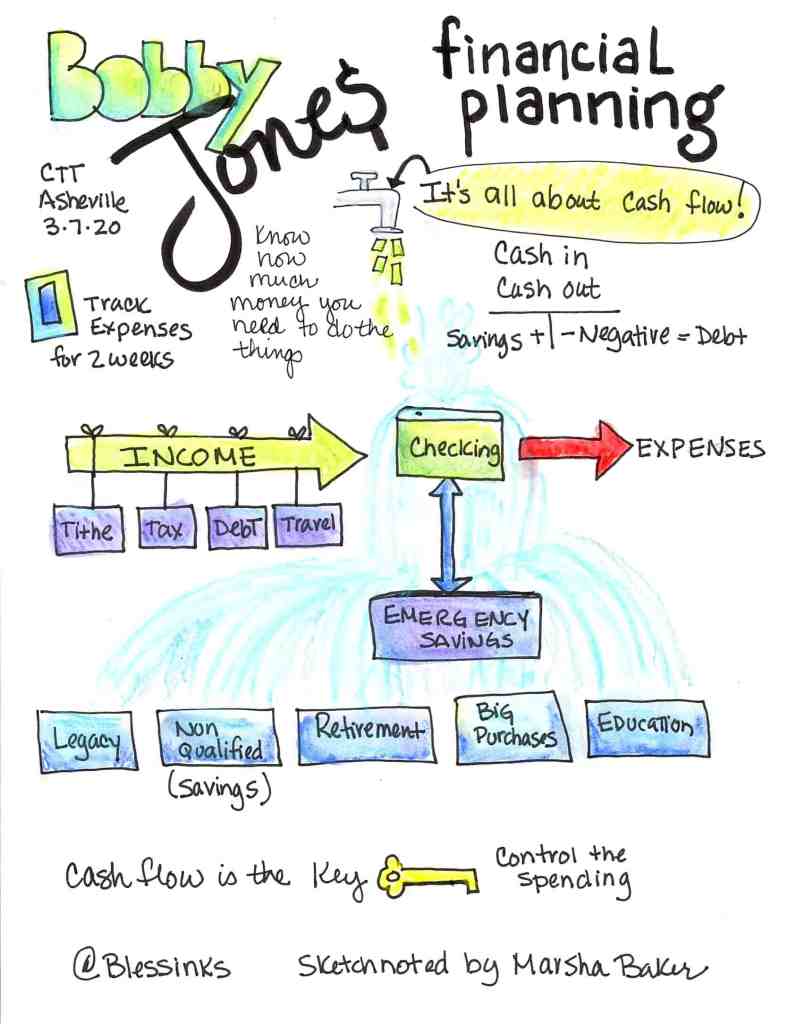 Bobby
Jone$
financial
planning
CTT
Asheville
3.7.20
It's all about cash flow!
Know
how
much
money you
need to do the
things
Cash in
Cash out
Savings + | - Negative = Debt
Track
Expenses
for 2 weeks
INCOME
Checking
EXPENSES
Tithe
Tax
Debt
Travel
EMERGENCY
SAVINGS
Legacy
Non
Qualified
(Savings)
Retirement
Big
Purchases
Education
Cash flow is the key
Control the
spending
@Blessinks
Sketchnoted by Marsha Baker